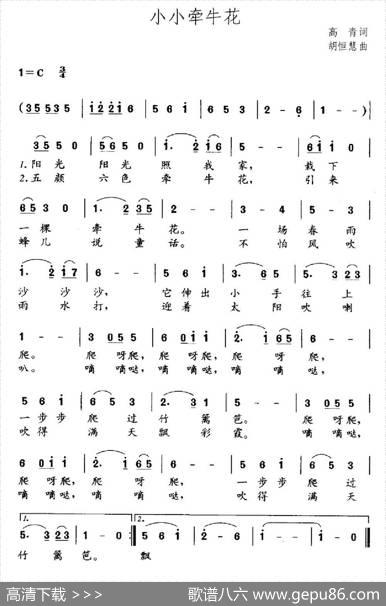 小小牵牛花
高青词
胡恒慧曲
1=C 3/4
(35535 | 12216 | 5 6 1 | 6 5 3 | 2 - 6 | 1 - - )|
3550 | 5650 | 1. 2 16 | 5 - - | 6 1 1 0 |
1.阳光 阳光 照我家, 栽下
2.五颜 六色 牵牛花, 引来
6530 | 1. 2 35 | 2 - - | 3 - 4 | 5 - 3 |
一棵 牵牛花。 一场春雨
蜂儿 说童话。 不怕风吹
1. 2 17 | 6 - - | 5 6 1 | 3. 6 5 | 5. 3 23 |
沙沙沙, 它伸出小手往上
雨水打, 迎着太阳吹喇
1 - - | 3 055 | 6 - - | 6 0 1 1 | 2 - - |
爬。 爬呀爬, 爬呀爬,
叭。 嘀嘀哒, 嘀嘀哒,
5 6 1 | 6 5 3 | 5. 6 3 | 2 - - | 3 055 |
一步步爬过竹篱笆。 爬呀爬,
吹得满天飘彩霞。 嘀嘀哒,
6 0 1 1 | 2. 1 65 | 6 - - | 5 6 1 | 6 5 3 |
爬呀爬, 爬呀爬, 一步步爬过
嘀嘀哒, 嘀嘀哒, 吹得满天
1. 2.
5. 3 23 | 1 - 0 :| 5 - 6 | 1 - - | 1 - 0 ||
竹篱笆。 飘
高清下载 >>> 歌谱八六 www.gepu86.com